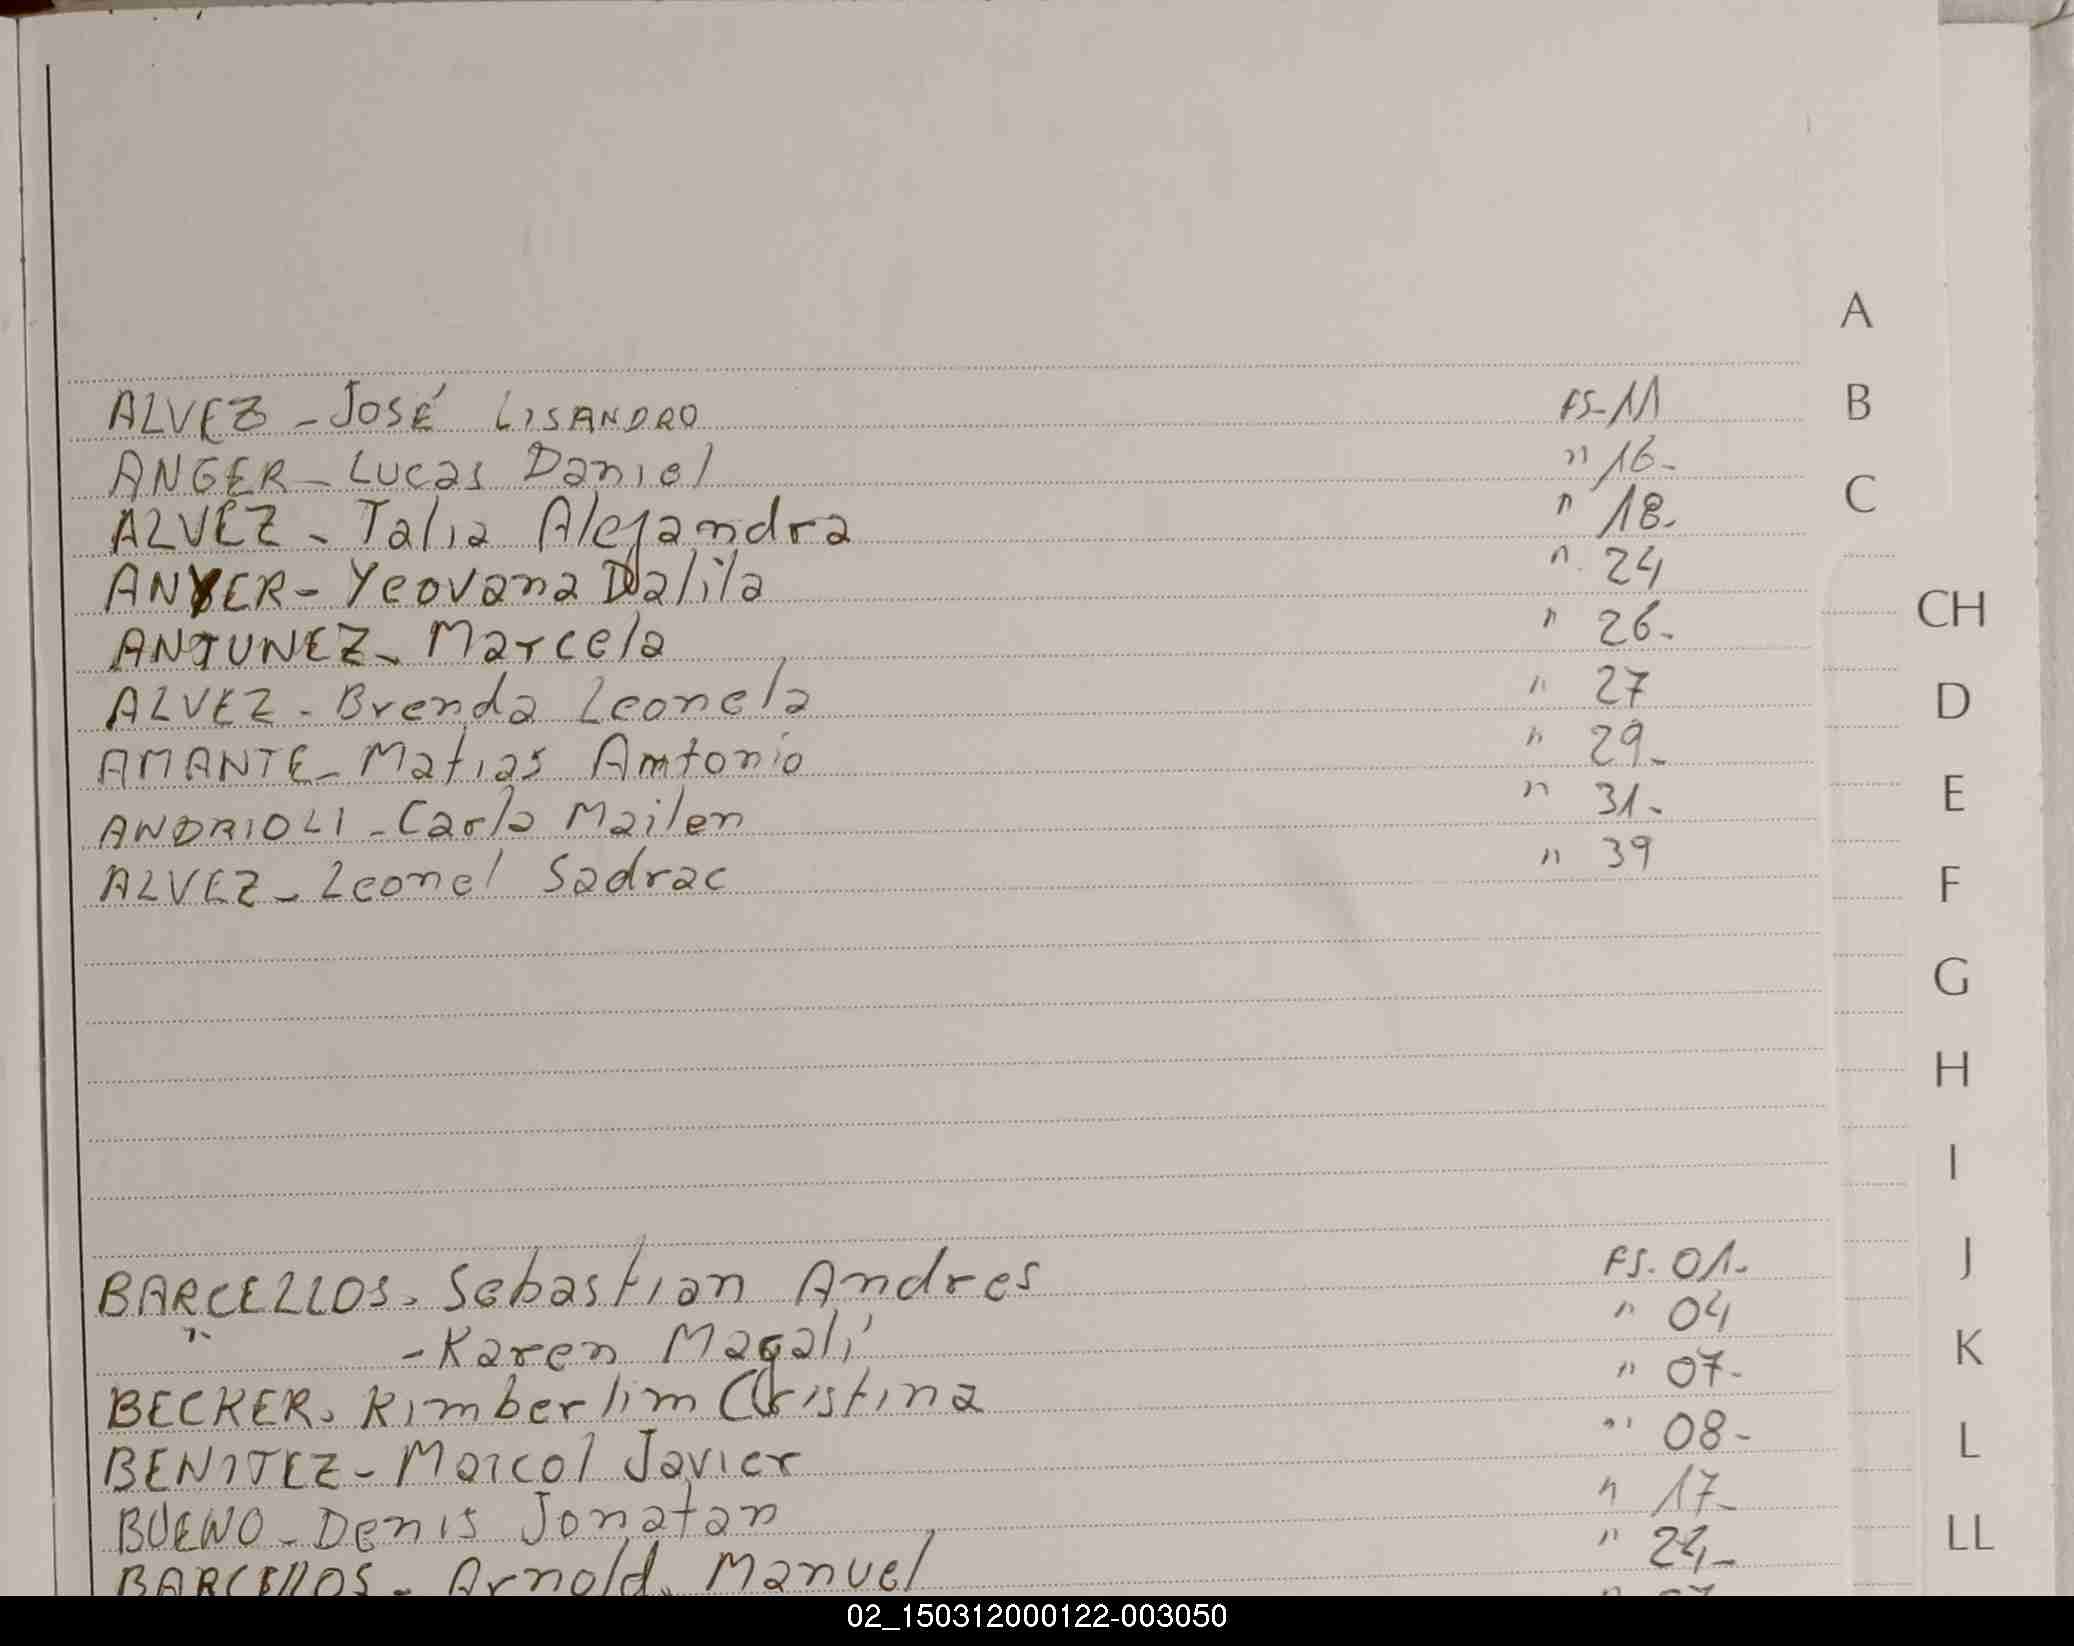 ALVEZ - JOSÉ LISANDRO FS-11
ANGER - Lucas Daniel " 16-
ALVEZ - Talia Alejandra " 18-
ANYER - Yeovana Dalila " 24
ANTUNEZ - Marcela " 26-
ALVEZ - Brenda Leonela " 27
AMANTE - Matias Amtonio " 29-
ANDRIOLI - Carla Mailen " 31-
ALVEZ - Leonel Sadrac " 39
BARCELLOS - Sebastian Andres FS. 01-
" - Karen Magalí " 04
BECKER - Kimberlim Cristina " 07-
BENITEZ - Maicol Javier " 08-
BUENO - Denis Jonatan " 17-
BARCELLOS - Arnold Manuel
A
B
C
CH
D
E
F
G
H
I
J
K
L
LL
02_150312000122-003050